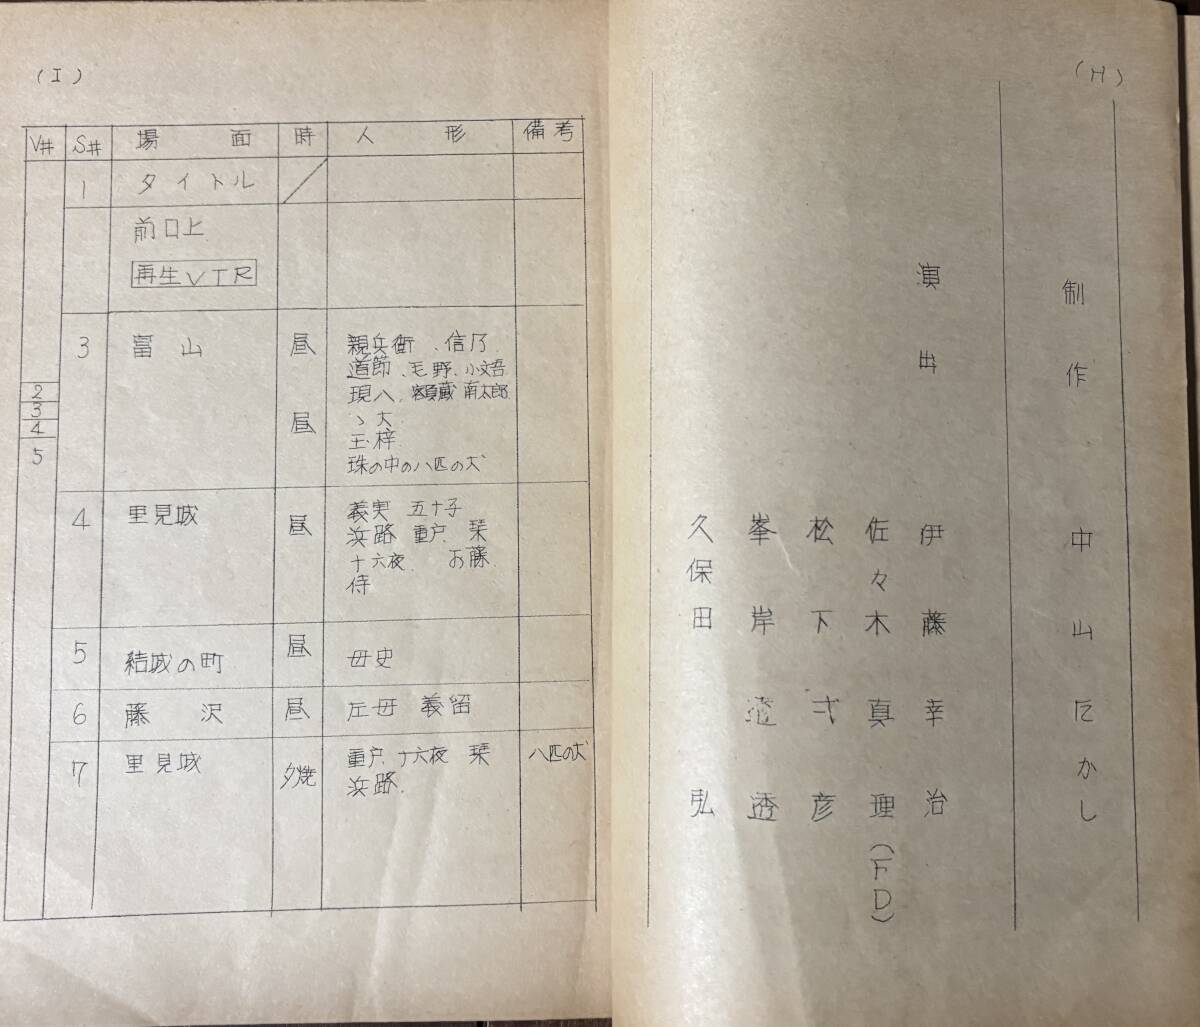 (H)
制作 中山たかし
演出 伊藤幸治
佐々木真理(FD)
松下 彦
峯岸 透
久保田 弘
(I)
V# S# 場面 時 人形 備考
1 タイトル
前口上
再生VTR
3 富山 昼 親兵衛、信乃
道節、毛野、小文吾
現八、額蔵 角太郎
昼 ゝ大
玉梓
珠の中の八匹の犬
2
3
4
5
4 里見城 昼 義実 五十子
浜路 重戸 栞
十六夜 お藤
侍
5 結城の町 昼 母史
6 藤沢 昼 左母 義留
7 里見城 夕焼 重戸、十六夜 栞 八匹の犬
浜路